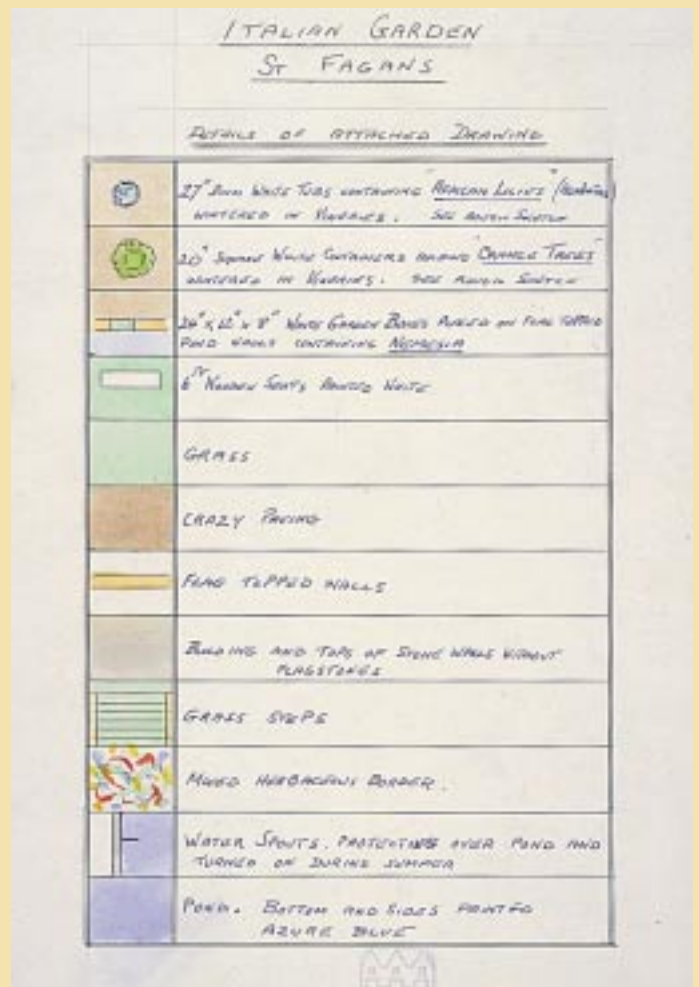 ITALIAN GARDEN
ST FAGANS
DETAILS OF ATTACHED DRAWING
27" DIAM WHITE TUBS CONTAINING "AFRICAN LILIES"
WINTERED IN VINERIES. SEE ROUGH SKETCH
20" SQUARE WHITE CONTAINERS "ORANGE TREES"
WINTERED IN VINERIES. SEE ROUGH SKETCH
24" x 12" x 8" WHITE GARDEN BOXES PLACED ON FLAG TOPPED
POND WALLS CONTAINING NEMESIA
6FT WOODEN SEATS PAINTED WHITE
GRASS
CRAZY PAVING
FLAG TOPPED WALLS
BUILDING AND TOPS OF STONE WALLS WITHOUT
FLAGSTONES
GRASS STEPS
MIXED HERBACEOUS BORDER.
WATER SPOUTS. PROTECTING OVER POND AND
TURNED ON DURING SUMMER
POND. BOTTOM AND SIDES PAINTED
AZURE BLUE